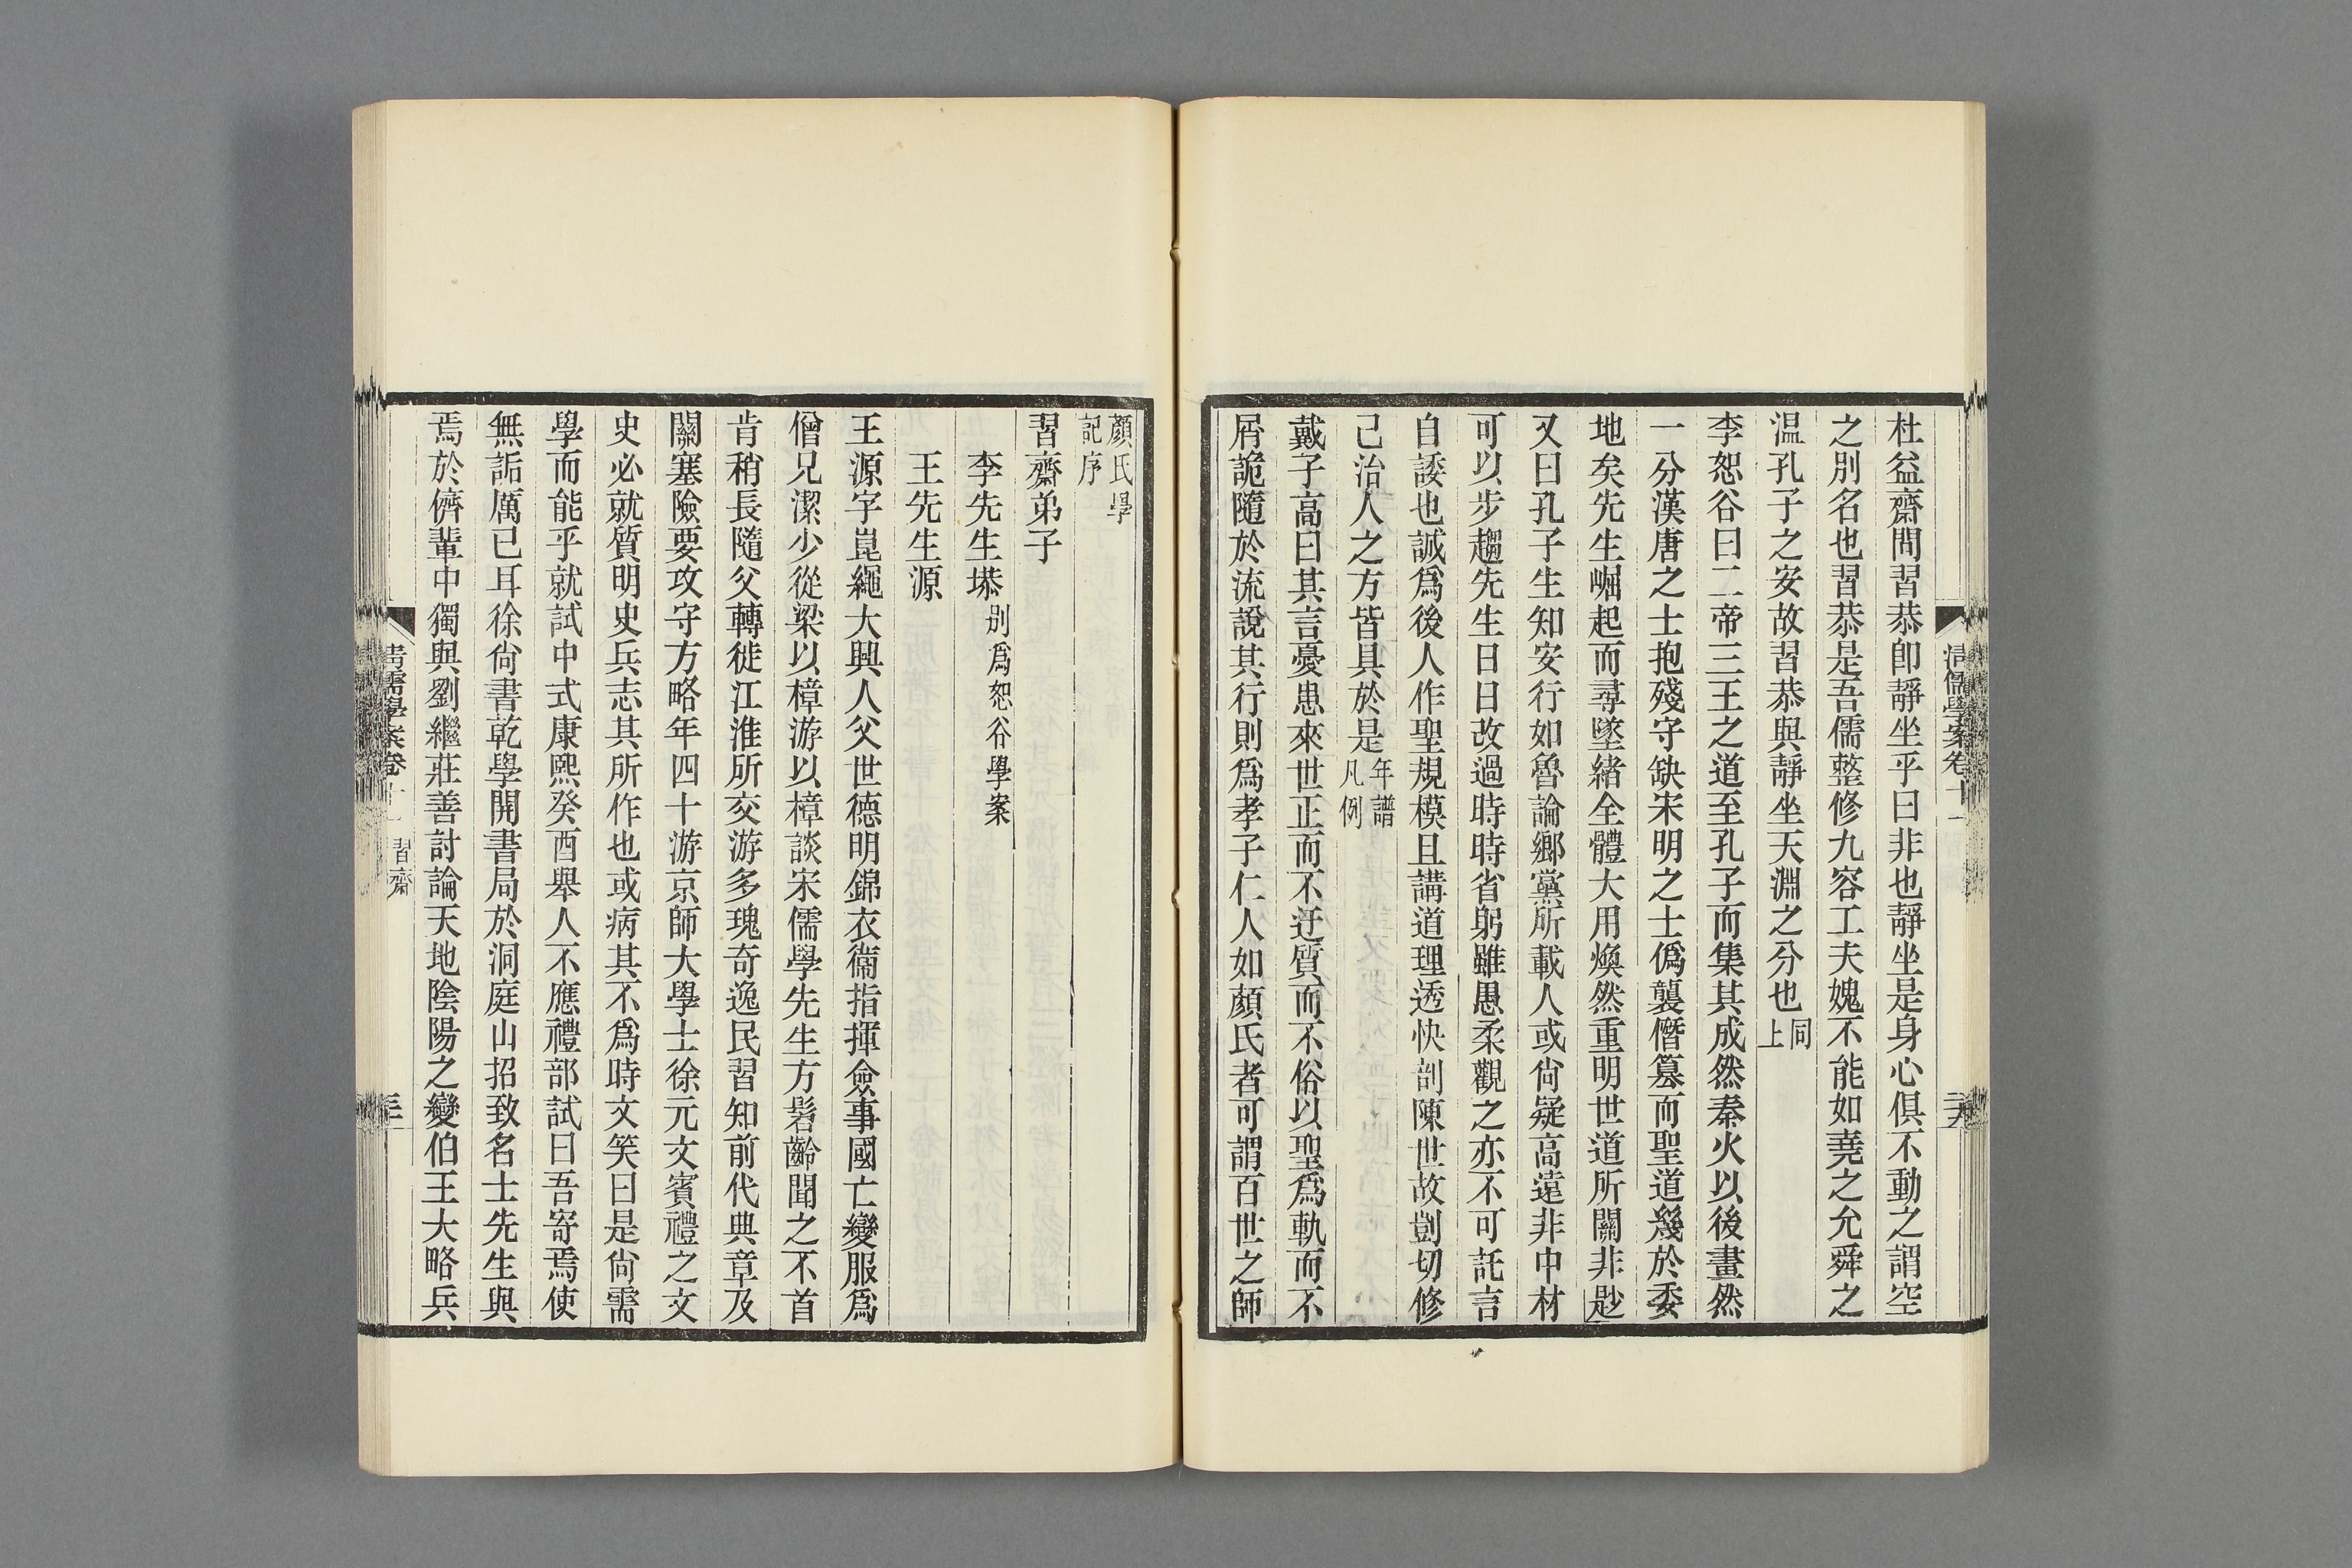 清儒學案卷十一
杜益齋問習恭卽靜坐乎曰非也靜坐是身心俱不動之謂空
之別名也習恭是吾儒整修九容工夫媿不能如堯之允舜之
温孔子之安故習恭與靜坐天淵之分也同上
李恕谷曰二帝三王之道至孔子而集其成然秦火以後畫然
一分漢唐之士抱殘守缺宋明之士僞襲僭簒而聖道幾於委
地矣先生崛起而尋墜緒全體大用煥然重明世道所關非尟
又曰孔子生知安行如魯論鄉黨所載人或尙疑高遠非中材
可以步趨先生日日改過時時省躬雖愚柔觀之亦不可託言
自諉也誠爲後人作聖規模且講道理透快剖陳世故剴切修
己治人之方皆具於是年譜凡例
戴子高曰其言憂患來世正而不迂質而不俗以聖爲軌而不
屑詭隨於流說其行則爲孝子仁人如顏氏者可謂百世之師
顏氏學記序
習齋弟子
李先生塨別爲恕谷學案
王先生源
王源字崑繩大興人父世德明錦衣衞指揮僉事國亡變服爲
僧兄潔少從梁以樟游以樟談宋儒學先生方髫齡聞之不首
肯稍長隨父轉徙江淮所交游多瑰奇逸民習知前代典章及
關塞險要攻守方略年四十游京師大學士徐元文賓禮之文
史必就質明史兵志其所作也或病其不爲時文笑曰是尙需
學而能乎就試中式康熙癸酉舉人不應禮部試曰吾寄焉使
無詬厲已耳徐尙書乾學開書局於洞庭山招致名士先生與
焉於儕輩中獨與劉繼莊善討論天地陰陽之變伯王大略兵
清儒學案卷十一 習齋